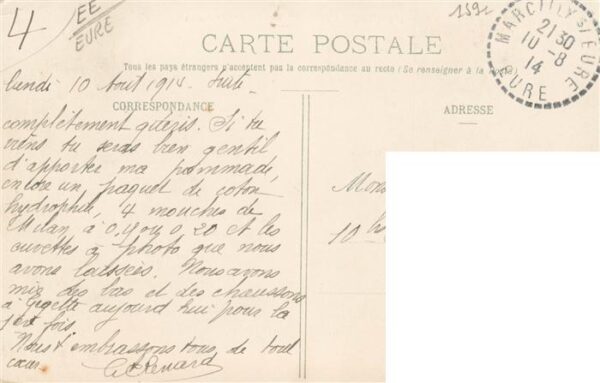 4
EE
EURE
159e
MARCILLY S/ EURE
21 30
10 - 8
14
EURE
CARTE POSTALE
Tous les pays étrangers n'acceptent pas la correspondance au recto (Se renseigner à la Poste)
CORRESPONDANCE
ADRESSE
lundi 10 Aout 1914. Suite.
complètement guéris. Si tu
viens tu seras bien gentil
d'apporter ma pommade,
encore un paquet de coton
hydrophile, 4 mouches de
Milan, à 0,10 ou 0,20 et les
cuvettes à photo que nous
avons laissées. Nous avons
mis des bas et des chaussons
à Gigette aujourd'hui pour la
1ère fois.
Nous t'embrassons tous de tout
cœur.
Mons
10 bis